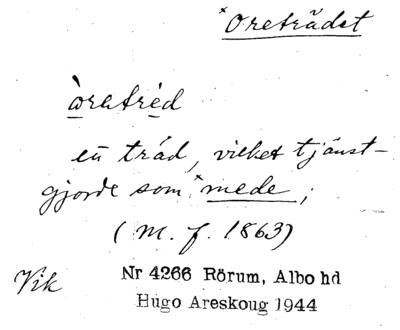 ×Oreträdet
òretrèd
en träd, vilket tjänst-
gjorde som ×mede;
(M. f. 1863)
Vik
Nr 4266 Rörum, Albo hd
Hugo Areskoug 1944